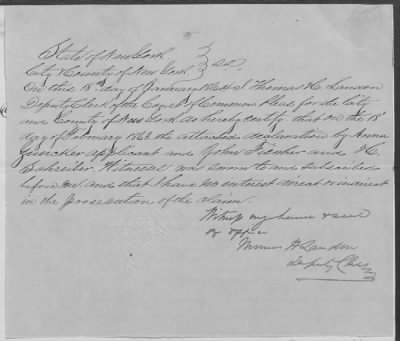 State of New York
City & County of New York } SS.
On this 18th day of January 1864 I Thomas H. Landon
Deputy Clerk of the Court of Common Pleas for the City
and County of New York do hereby certify that on the 18
day of February 1863 the attached declaration by Anna
applicant and John Fischer and H
Schreiber Witnesses was sworn to and subscribed
before me and that I have no interest direct or indirect
in the prosecution of the claim.
Witness my hand & seal
of office
Thomas H Landon
Deputy Clerk